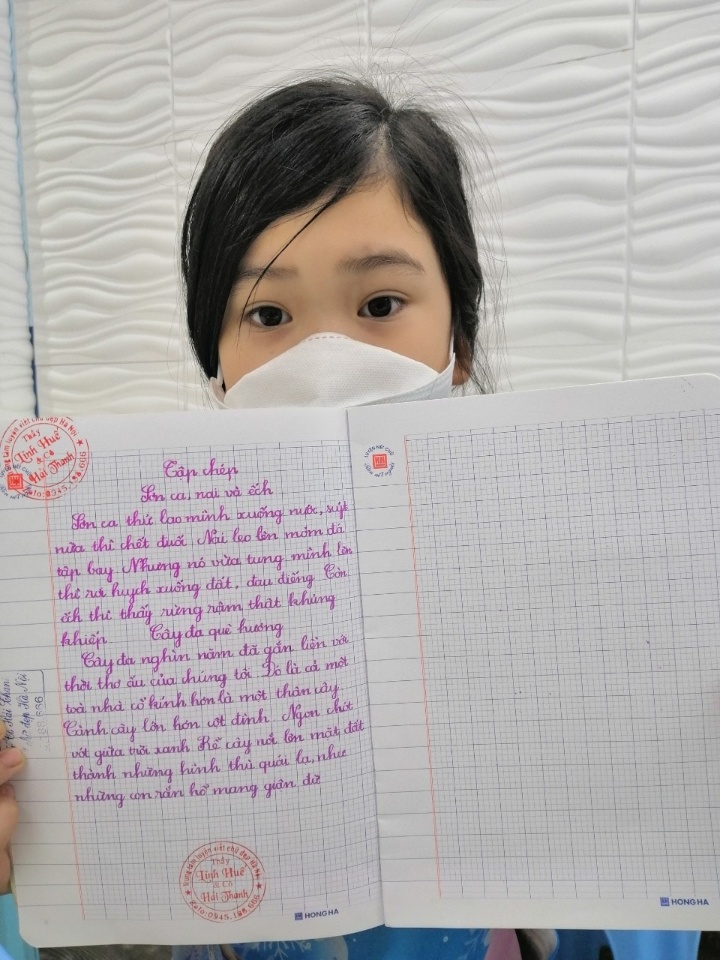 Tập chép
Sơn ca, nai và ếch
Sơn ca thử lao mình xuống nước, suýt
nữa thì chết đuối Nai leo lên mỏm đá
tập bay Nhưng nó vừa tung mình lên
thì rơi huỵch xuống đất, đau điếng Còn
ếch thì thấy rừng rậm thật khủng
khiếp Cây đa quê hương
Cây đa nghìn năm đã gắn liền với
thời thơ ấu của chúng tôi Đó là cả một
toà nhà cổ kính hơn là một thân cây
Cành cây lớn hơn cột đình Ngọn chót
vót giữa trời xanh Rễ cây nổi lên mặt đất
thành những hình thù quái lạ, như
những con rắn hổ mang giận dữ
Trung tâm luyện viết chữ đẹp Hà Nội
Thầy
Tính Huế
& Cô
Hải Thanh
Zalo: 0945.188.666
Trung tâm luyện viết chữ đẹp Hà Nội
Thầy
Tính Huế
& Cô
Hải Thanh
Zalo: 0945.188.666
HONG HA
LUYỆN NÉT CHỮ
RÈN NẾT NGƯỜI
HONG HA